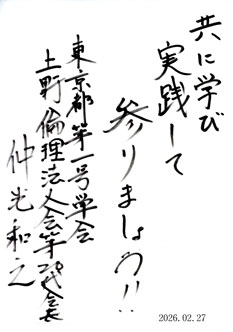 共に学び
実践して
参りましょう!!
東京都第一号学会
上野倫理法人会第29代会長
仲光和之
2026.02.27